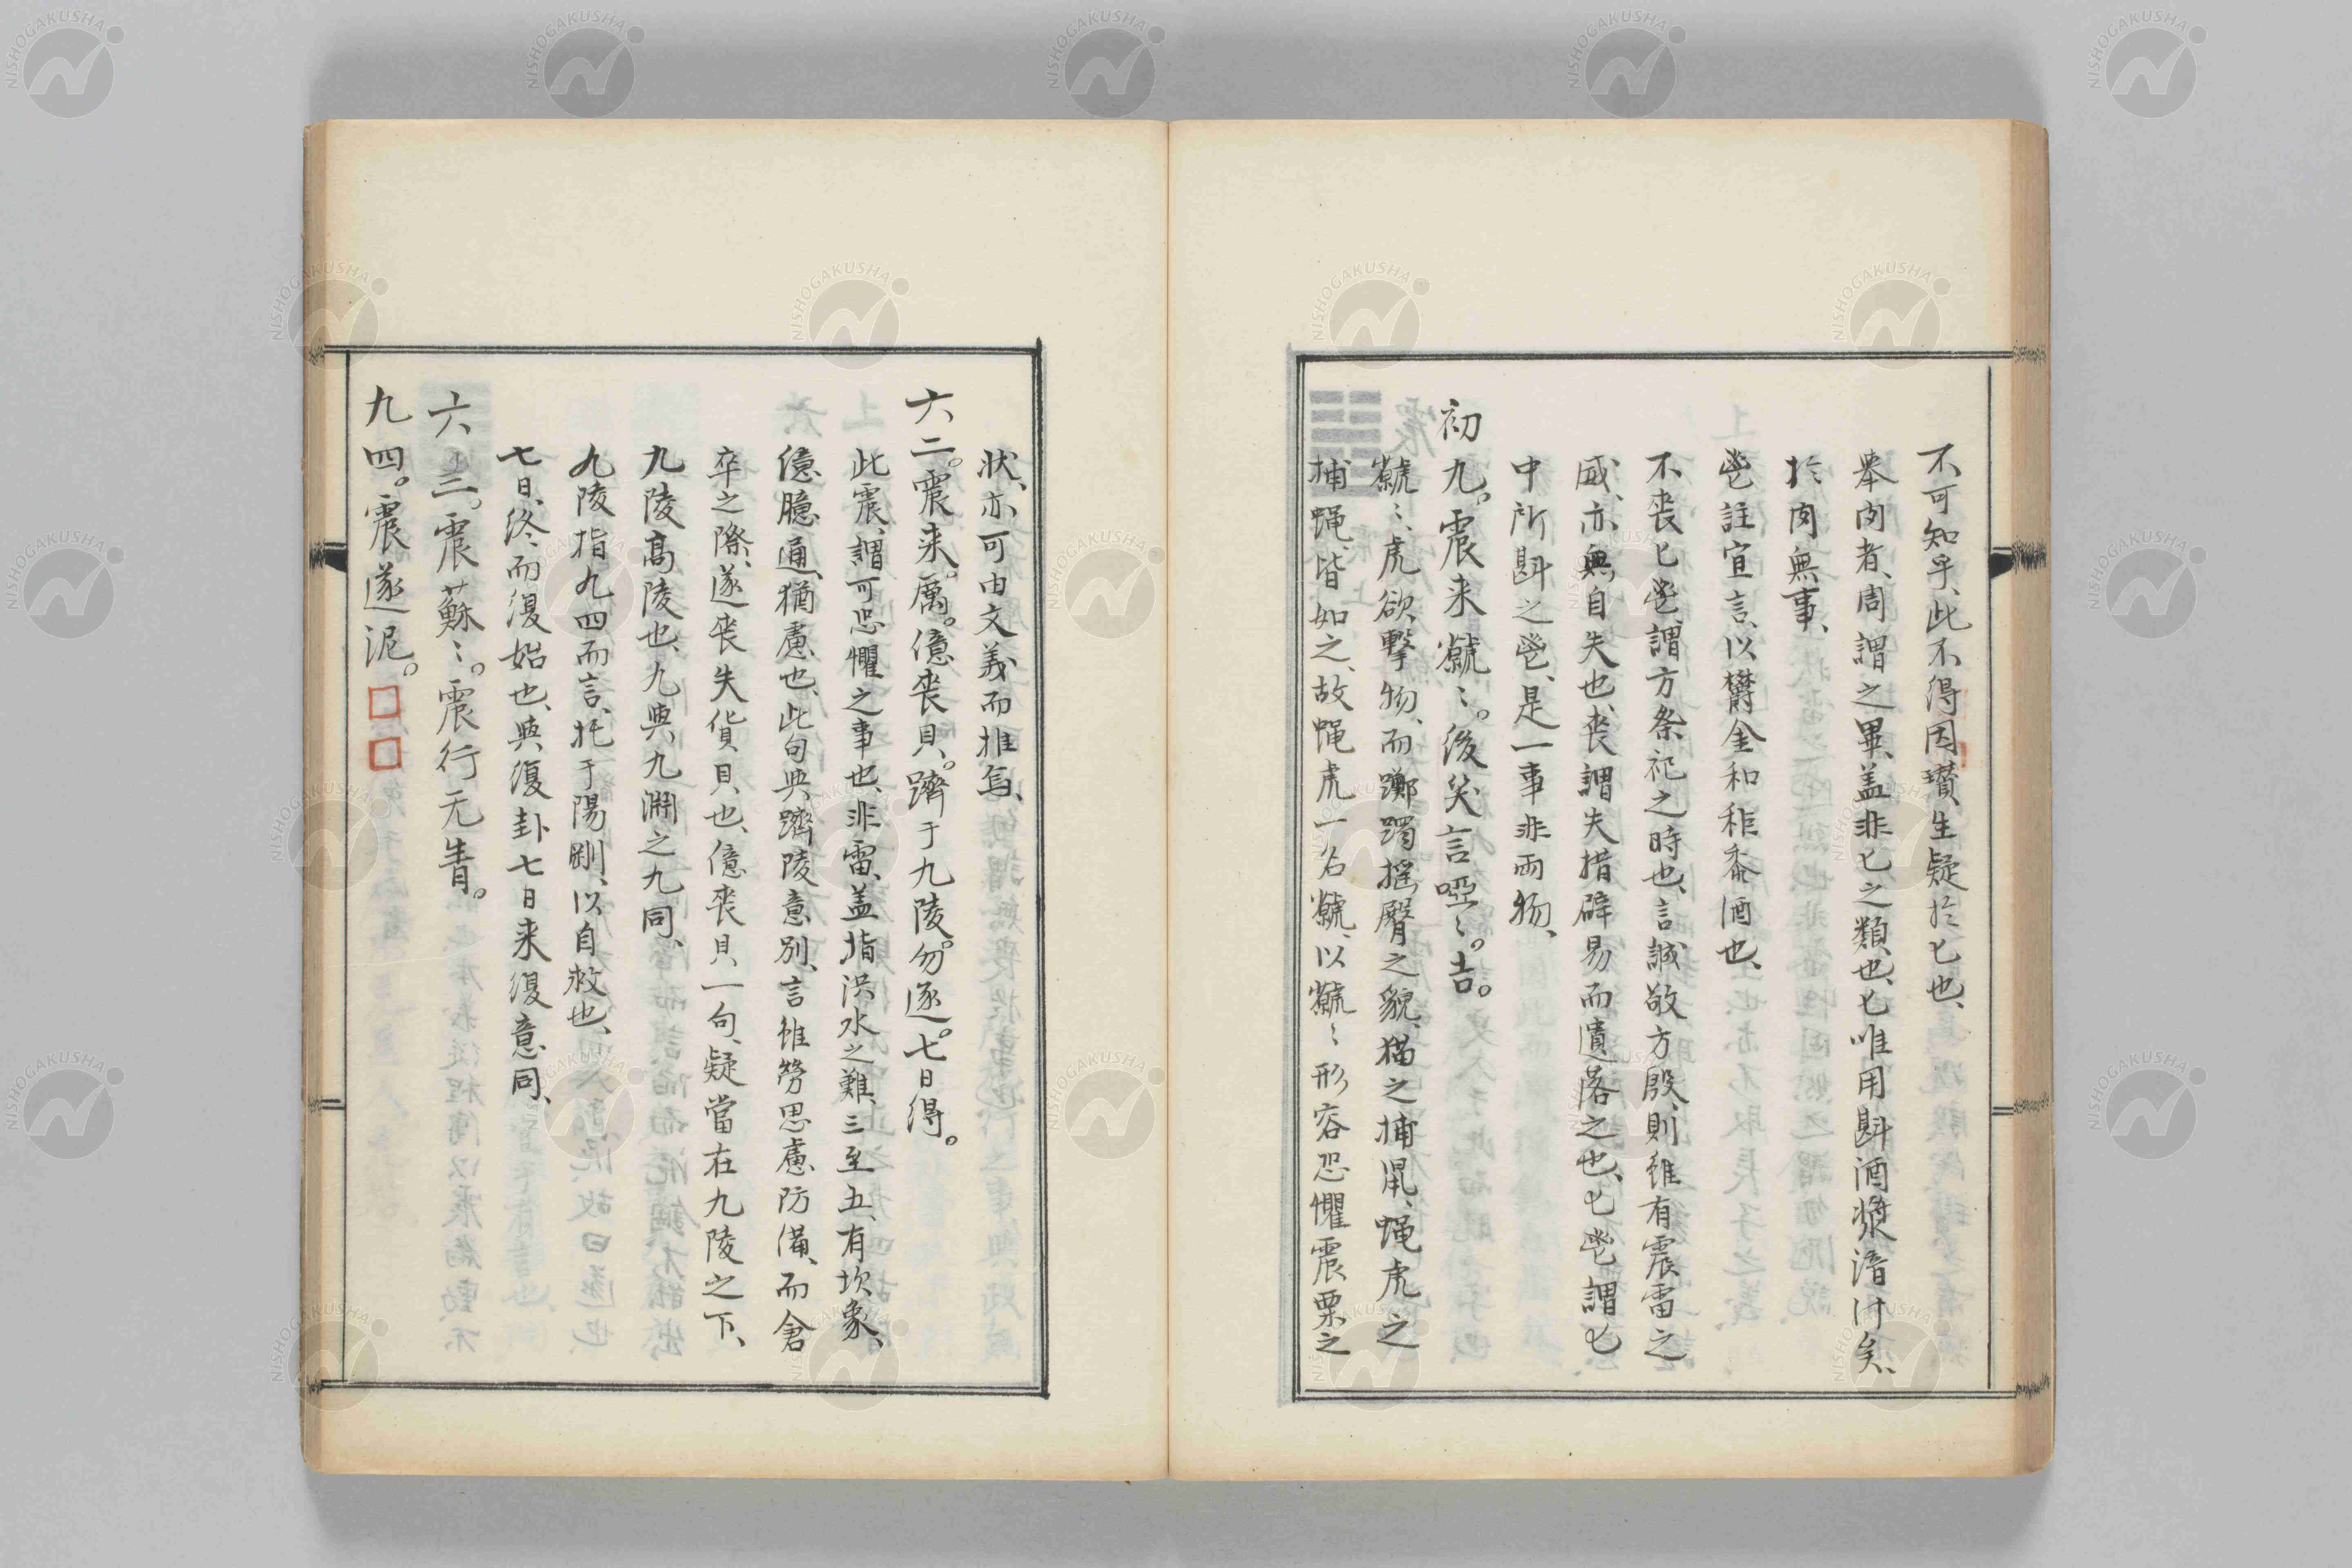 不可知乎、此不得因瓚生疑於匕也、
舉肉者、周謂之畢、蓋非匕之類也、匕唯用斟酒漿湆汁矣、
於肉無事、
鬯註宜言、以欝金和秬黍酒也、
不喪匕鬯、謂方祭祀之時也、言誠敬方殷、則雖有震雷之
威、亦無自失也、喪謂失措辟易而遺落之也、匕鬯謂匕
中所斟之鬯、是一事非両物、
初九。震来虩〻。後笑言啞〻。吉。
虩〻、虎欲撃物、而躑躅揺臀之貌、猫之捕鼠、蝿虎之
捕蝿、皆如之、故蝿虎一名虩、以虩〻形容恐懼震栗之
状、亦可由文義而推焉、
六二。震来。厲。億喪貝。躋于九陵。勿逐。七日得。
此震、謂可恐懼之事也、非雷、蓋指洪水之難、三至五、有坎象、
億臆通、猶慮也、此句與躋陵意別、言惟勞思慮防備、而倉
卒之際、遂喪失貨貝也、億喪貝一句、疑當在九陵之下、
九陵高陵也、九與九淵之九同、
九陵指九四而言、托于陽剛、以自救也、
七日、終而復始也、與復卦七日来復意同、
六三。震蘇〻。震行无眚。
九四。震遂泥。
NISHOGAKUSHA